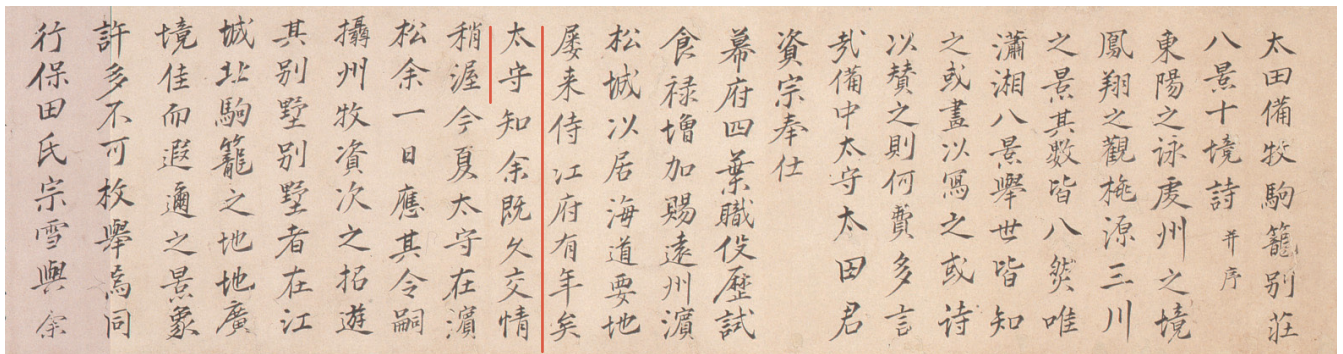 太田備牧駒籠別莊
八景十境詩并序
東陽之詠虔州之境
鳳翔之觀桃源三川
之景其數皆八然唯
瀟湘八景擧世皆知
之或畫以寫之或詩
以賛之則何費多言
哉備中太守太田君
資宗奉仕
幕府四葉職役歷試
食禄增加賜遠州濵
松城以居海道要地
屡来侍江府有年矣
太守知余既久交情
稍渥今夏太守在濵
松余一日應其令嗣
攝州牧資次之招遊
其別墅別墅者在江
城北駒籠之地地廣
境佳而遐邇之景象
許多不可枚擧焉同
行保田氏宗雪與余